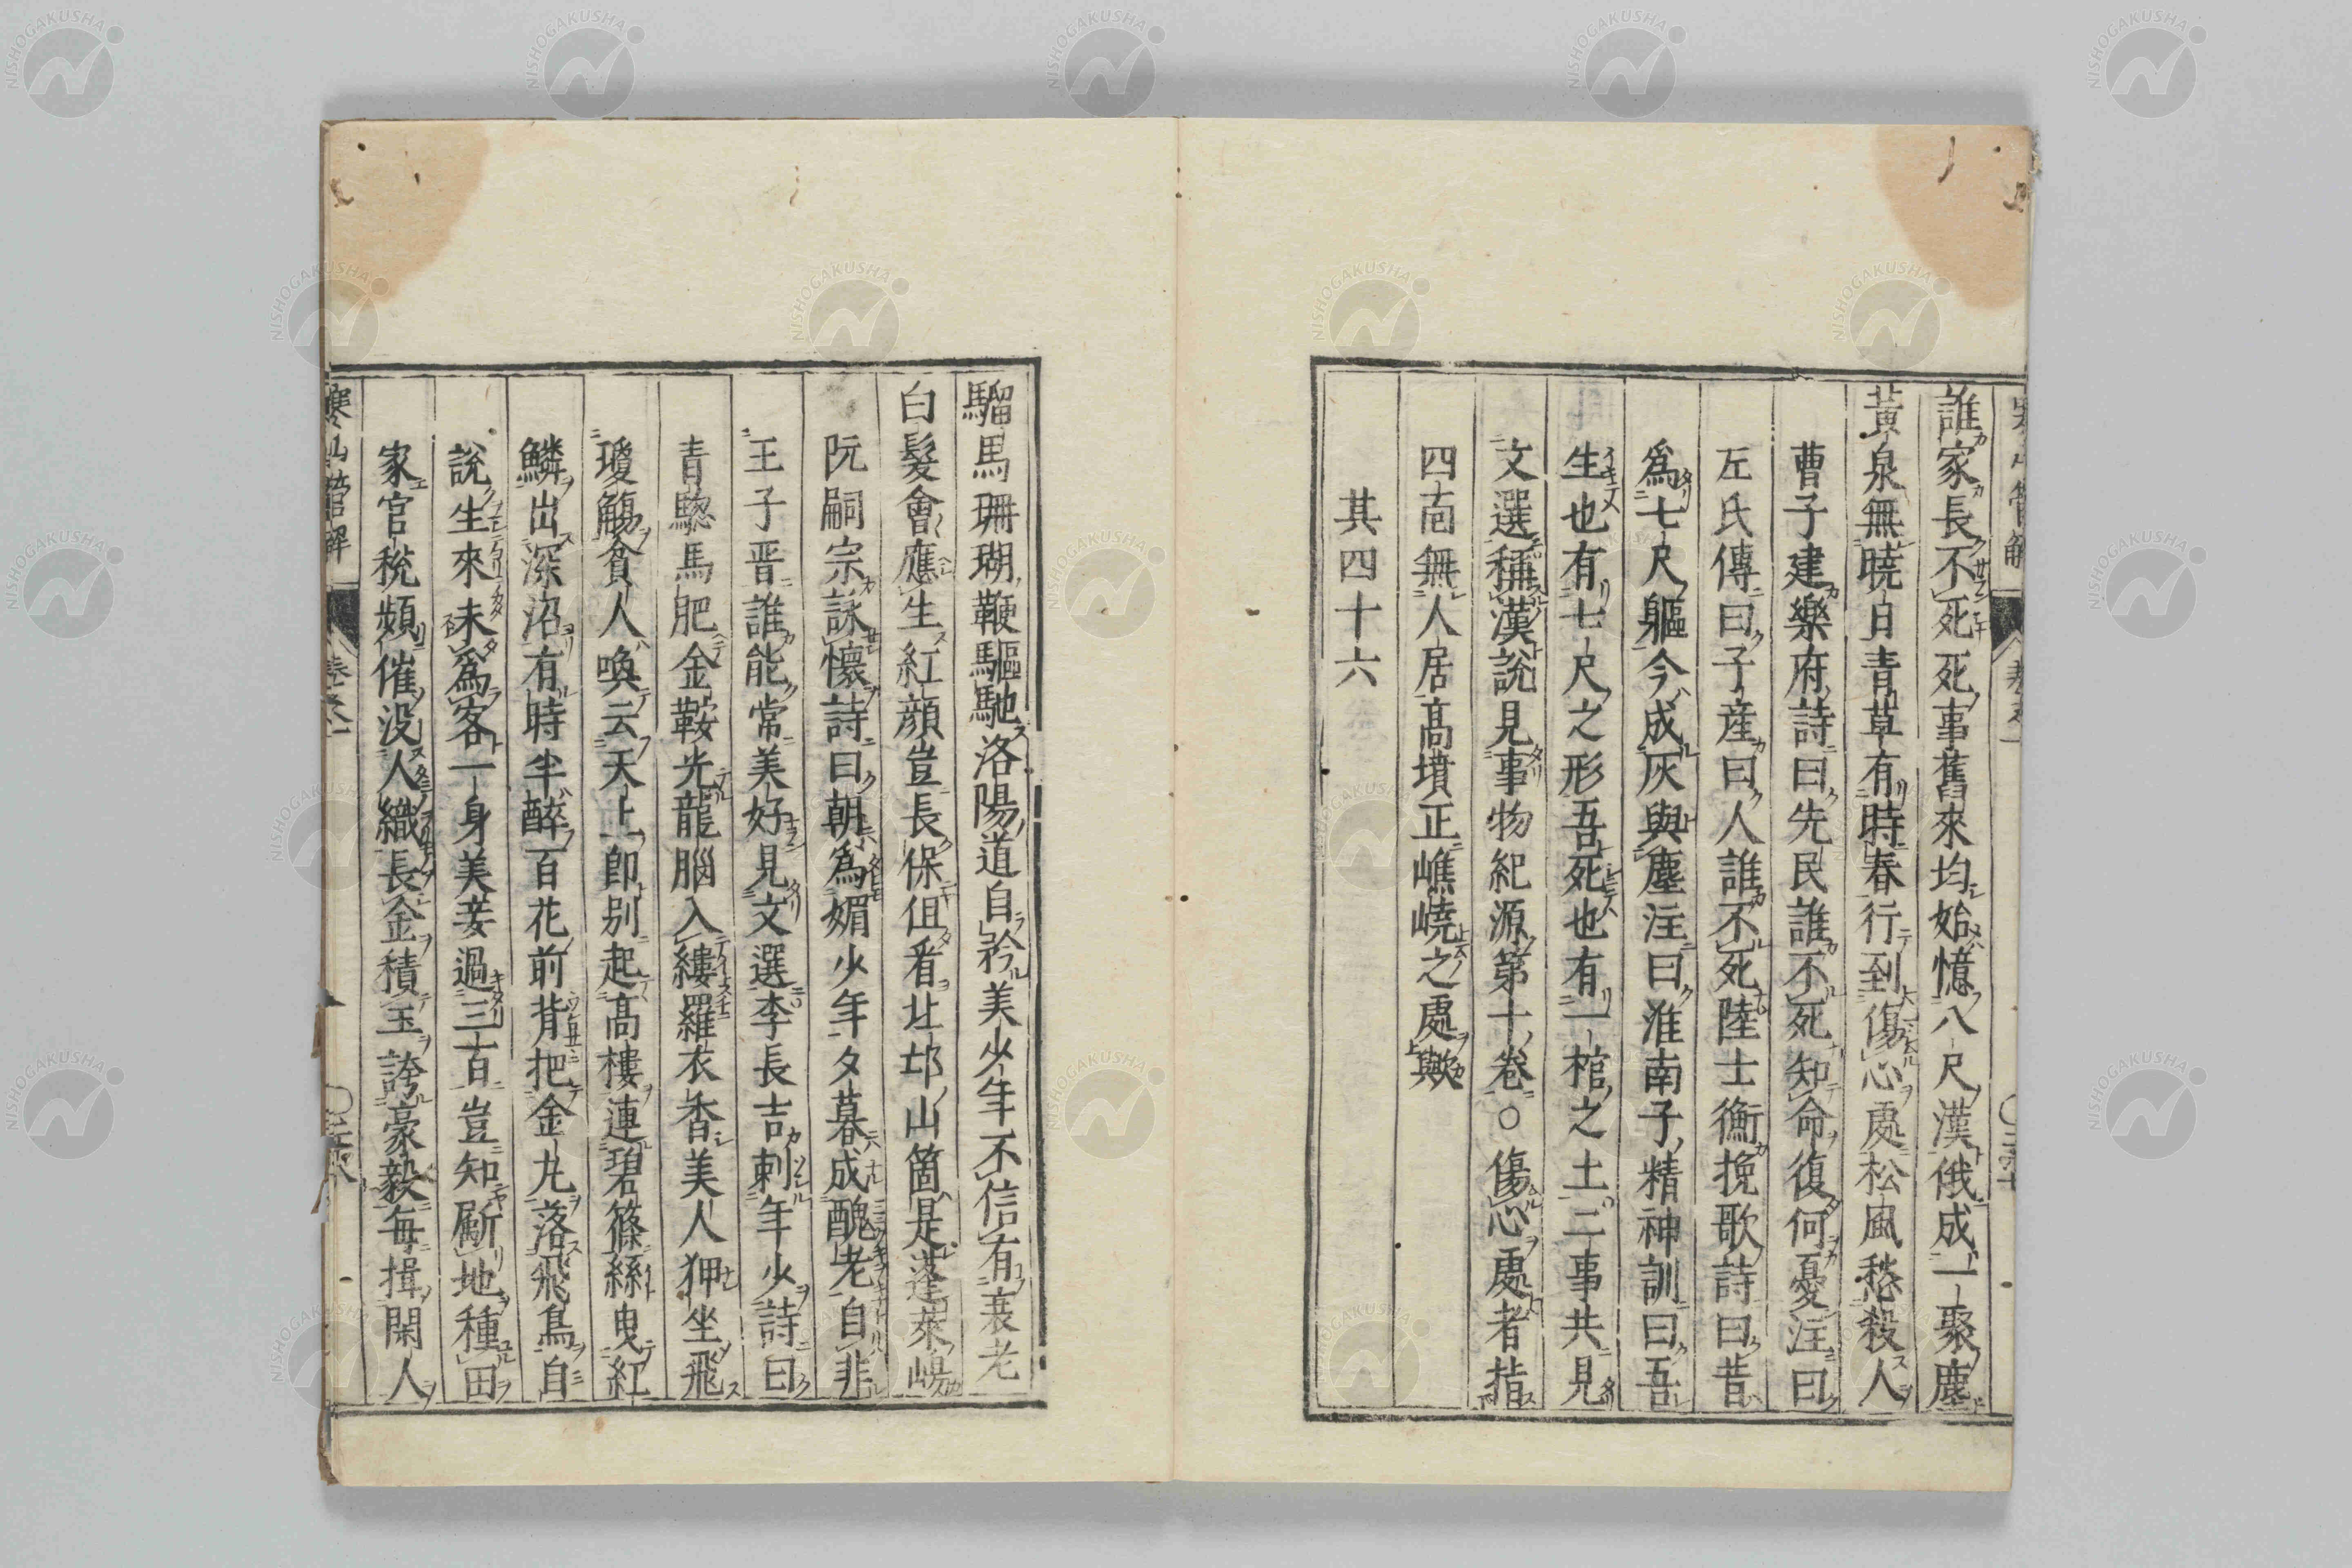 誰家長不死死事舊來均始憶八尺漢俄成一聚塵
黃泉無曉日青草有時春行到傷心處松風愁殺人
曹子建樂府詩曰先民誰不死知命復何憂注曰
左氏傳曰子産曰人誰不死陸士衡挽歌詩曰昔
爲七尺軀今成灰與塵注曰淮南子精神訓曰吾
生也有七尺之形吾死也有一棺之土二事共見
文選稱漢說見事物紀源第十卷○傷心處者指
四面無人居高墳正嶕嶢之處歟
其四十六
騮馬珊瑚鞭驅馳洛陽道自矜美少年不信有衰老
白髮會應生紅顏豈長保但看北邙山箇是蓬萊嶋
阮嗣宗詠懷詩曰朝爲媚少年夕暮成醜老自非
王子晋誰能常美好見文選李長吉刺年少詩曰
青驄馬肥金鞍光龍腦入縷羅衣香美人狎坐飛
瓊觴貧人喚云天上郎别起高樓連碧篠絲曳紅
鱗出深沼有時半醉百花前背把金丸落飛鳥自
說生來未爲客一身美妾過三百豈知斸地種田
家官稅頻催没人織長金積玉誇豪毅每揖閑人
寒山詩管解 卷之一
NISHOGAKUSHA